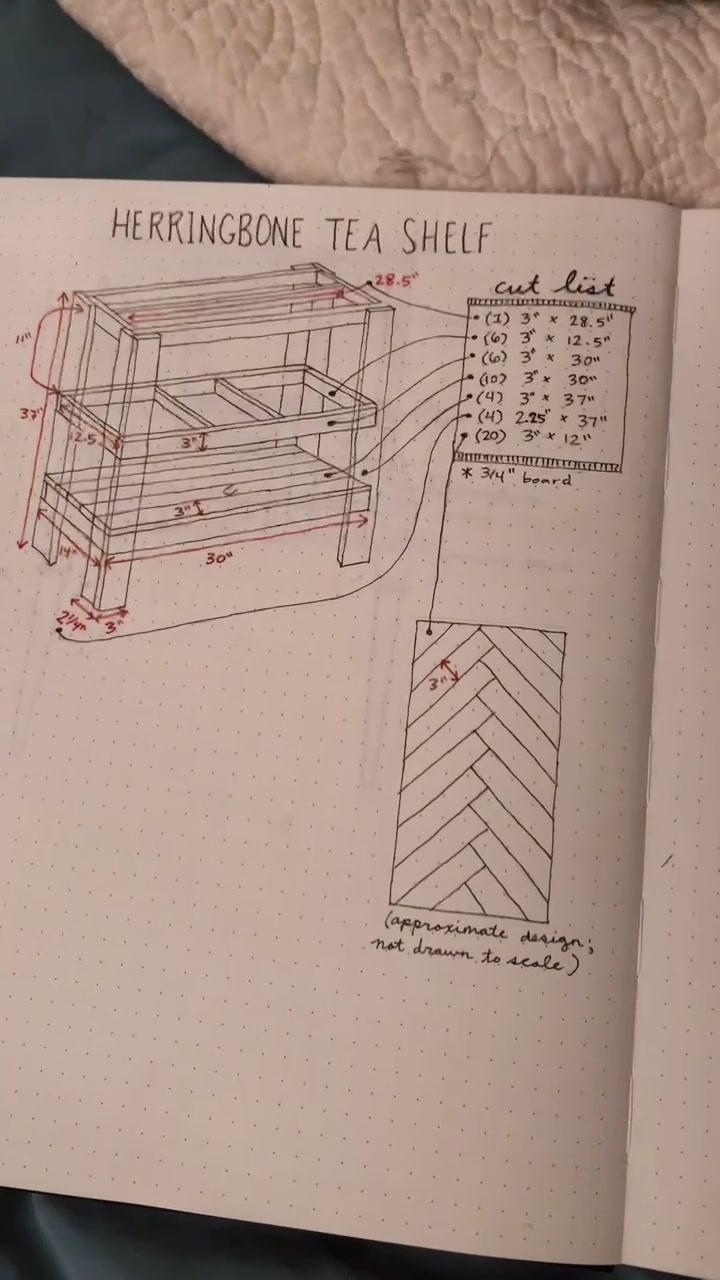 HERRINGBONE TEA SHELF
28.5"
11"
37"
12.5
3"
3"
14"
30"
2 1/4"
3"
cut list
(1) 3" × 28.5"
(6) 3" × 12.5"
(6) 3" × 30"
(10) 3" × 30"
(4) 3" × 37"
(4) 2.25" × 37"
(20) 3" × 12"
* 3/4" board
3"
(approximate design;
not drawn to scale)